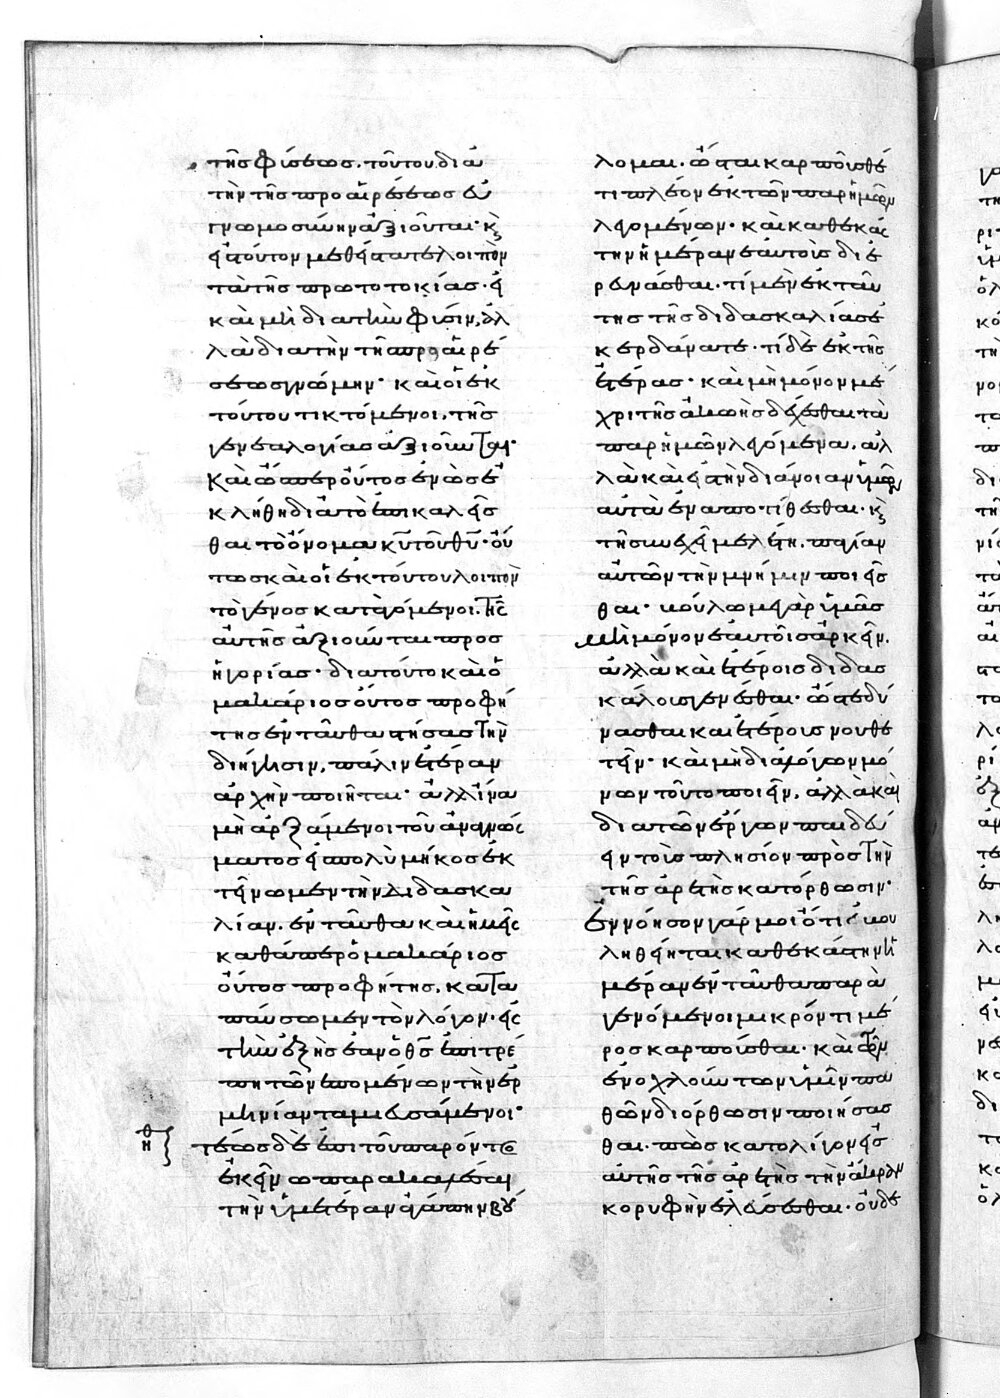 τῆς φύσεως. τοῦτον διὰ
τὴν τῆς προαιρέσεως εὐ
γνωμοσύνην ἀξιοῦται· κ
εἰς τοῦτον μεθίστατε λοιπὸν
τὰ τῆς πρωτοτοκίας· εἰ
καὶ μὴ διὰ τὴν φύσιν, ἀλ
λὰ διὰ τὴν τῆς προαιρέ
σεως γνώμην· καὶ οἱ ἐκ
τούτου τικτόμενοι, τῆς
γενεαλογίας ἀξιοῦνται·
Καὶ ὥσπερ οὗτος ἐνὼς ἐ
κλήθη διὰ τὸ ἐπικαλεῖσ
θαι τὸ ὄνομα κυ τοῦ θυ· οὕ
τως καὶ οἱ ἐκ τούτου λοιπὸν
τὸ γένος κατάγόμενοι, τῆς
αὐτῆς ἀξιοῦνται προσ
ηγορίας· διὰ τοῦτο καὶ ὁ
μακάριος οὗτος προφή
της ἐνταῦθα στήσας τὴν
διήγησιν, πάλιν ἑτέραν
ἀρχὴν ποιεῖται· ἀλλ' ἵνα
μὴ ἀρξάμενοι τοῦ ἀναγνώσ
ματος εἰς πολὺ μῆκος ἐκ
τείνωμεν τὴν διδασκα
λίαν. ἐνταῦθα καὶ ἡμεῖς
καθάπερ ὁ μακάριος
οὗτος προφήτης, κατα
παύσωμεν τὸν λόγον· εἰς
τὴν ἑξῆς ἐὰν ὁ θς ἐπιτρέ
πη τῶν ἑπομένων τὴν ἑρ
μηνίαν ταμιευσάμενοι·
θη τέως δὲ ἐπὶ τοῦ παρόντος
ἐκεῖνω παρακαλέσαι
τὴν ὑμετέραν ἀγάπην βού
λομαι. ὥσται καρποῦσθέ
τι πλέον ἐκ τῶν παρ' ἡμῶν
λεγομένων· καὶ καθεκάσ
την ἡμέραν ἑαυτοὺς διε
ρευνάσθαι. τί μὲν ἐκ ταύ
της τῆς διδασκαλίας ἐ
κερδάνατε· τί δὲ ἐκ τῆς
ἑτέρας· καὶ μὴ μόνον μέ
χρι τῆς ἀκοῆς δέχεσθαι τὰ
παρ' ἡμῶν λεγόμενα, ἀλ
λὰ καὶ εἰς τὴν διάνοιαν ὑμῶν
αὐτὰ ἐναποτίθεσθαι· κ
τῆ συνεχεῖ μελέτη, παγίαν
αὐτῶν τὴν μνήμην ποιεῖσ
θαι· βούλομαι γὰρ ὑμᾶς
μὴ μόνον ἑαυτοῖς ἀρκεῖν.
ἀλλὰ καὶ ἑτέροις διδασ
κάλους γενέσθαι· ὥστε δύ
νασθαι καὶ ἑτέρους νουθε
τεῖν· καὶ μὴ διὰ λόγων μό
νων τοῦτο ποιεῖν, ἀλλὰ καὶ
διὰ τῶν ἔργων παιδεύ
ειν τοὺς πλησίον πρὸς τὴν
τῆς ἀρετῆς κατόρθωσιν·
Ἐννόησον γάρ μοι ὅτι εἰ βου
ληθείηται καθεκάστην ἡ
μέραν ἐνταῦθα παρα
γενόμενοι μικρόν τι μέ
ρος καρποῦσθαι· καὶ τῶν
ἐνοχλούντων ὑμῖν πα
θῶν διόρθωσιν ποιήσασ
θαι. πῶς κατολίγον εἰς
αὐτῆς τῆς ἀρετῆς τὴν ἄκραν
κορυφὴν ἐλεύσεσθαι· οὐδὲ